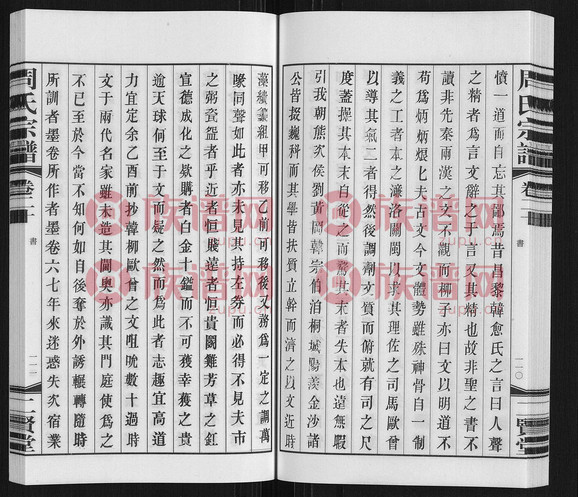 周氏宗譜
卷二
書
二〇
二賢堂
憤一道而自忘其鄙焉昔昌黎韓愈氏之言曰人聲
之精者為言文辭之于言又其精也故非聖之書不
讀非先秦兩漢之文不觀而柳子亦曰文以明道不
苟為炳炳烺烺匕夫古文今文體勢雖殊神骨自一制
義之工者本之濂洛關閩以求其理佐之司馬歐曾
以導其氣二者得然後調劑文質而俯就有司之尺
度蓋操其本末白從之而騖其末者失本也遠無暇
引我朝熊次侯劉黃岡韓宗伯泊桐城陽羨金沙諸
公皆掇巍科而其學皆扶質立幹而濟之以文近時
藻繢叢組甲可移乙前可移後又務為一定之調萬
喙同聲如此者亦未見其持左券而必得不見夫市
之粥瓷盌者乎近者恒賤遠者恒貴闤難芳草之釭
宣德成化之款購者白金十鎰而不可獲幸獲之貴
逾天球何至于文而疑之然而為此者志趣宜高道
力宜定余乙酉前抄韓柳歐曾之文咀吮數十過時
文于兩代名家雖未造其閫奧亦識其門庭使為之
不已至於今當不知何如自後奪於外誘輾轉隨時
所訓者墨卷所作者墨卷六七年來迷惑失次宿業
周氏宗譜
卷二
書
二一
二賢堂
族谱网
zupu.cn
族谱网
zupu.cn
族谱网
zupu.cn
族谱网
zupu.cn